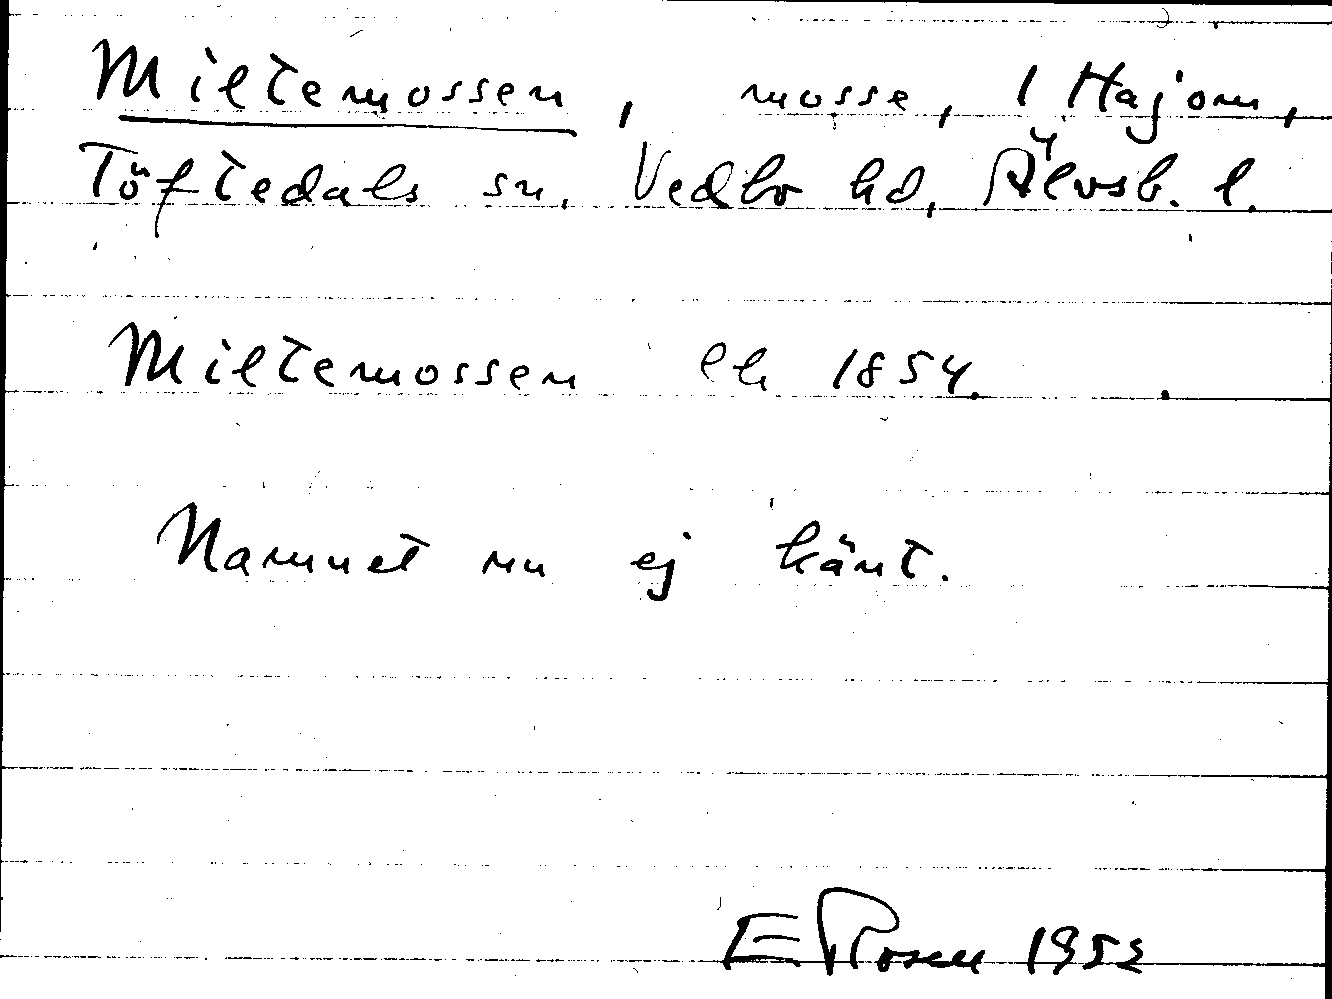 Miltemossen, mosse, 1 Hajom,
Töftedals sn. Vedbo hd, Älvsb. l.
Miltemossen ek 1854.
Namnet nu ej känt.
E Rosen 1952